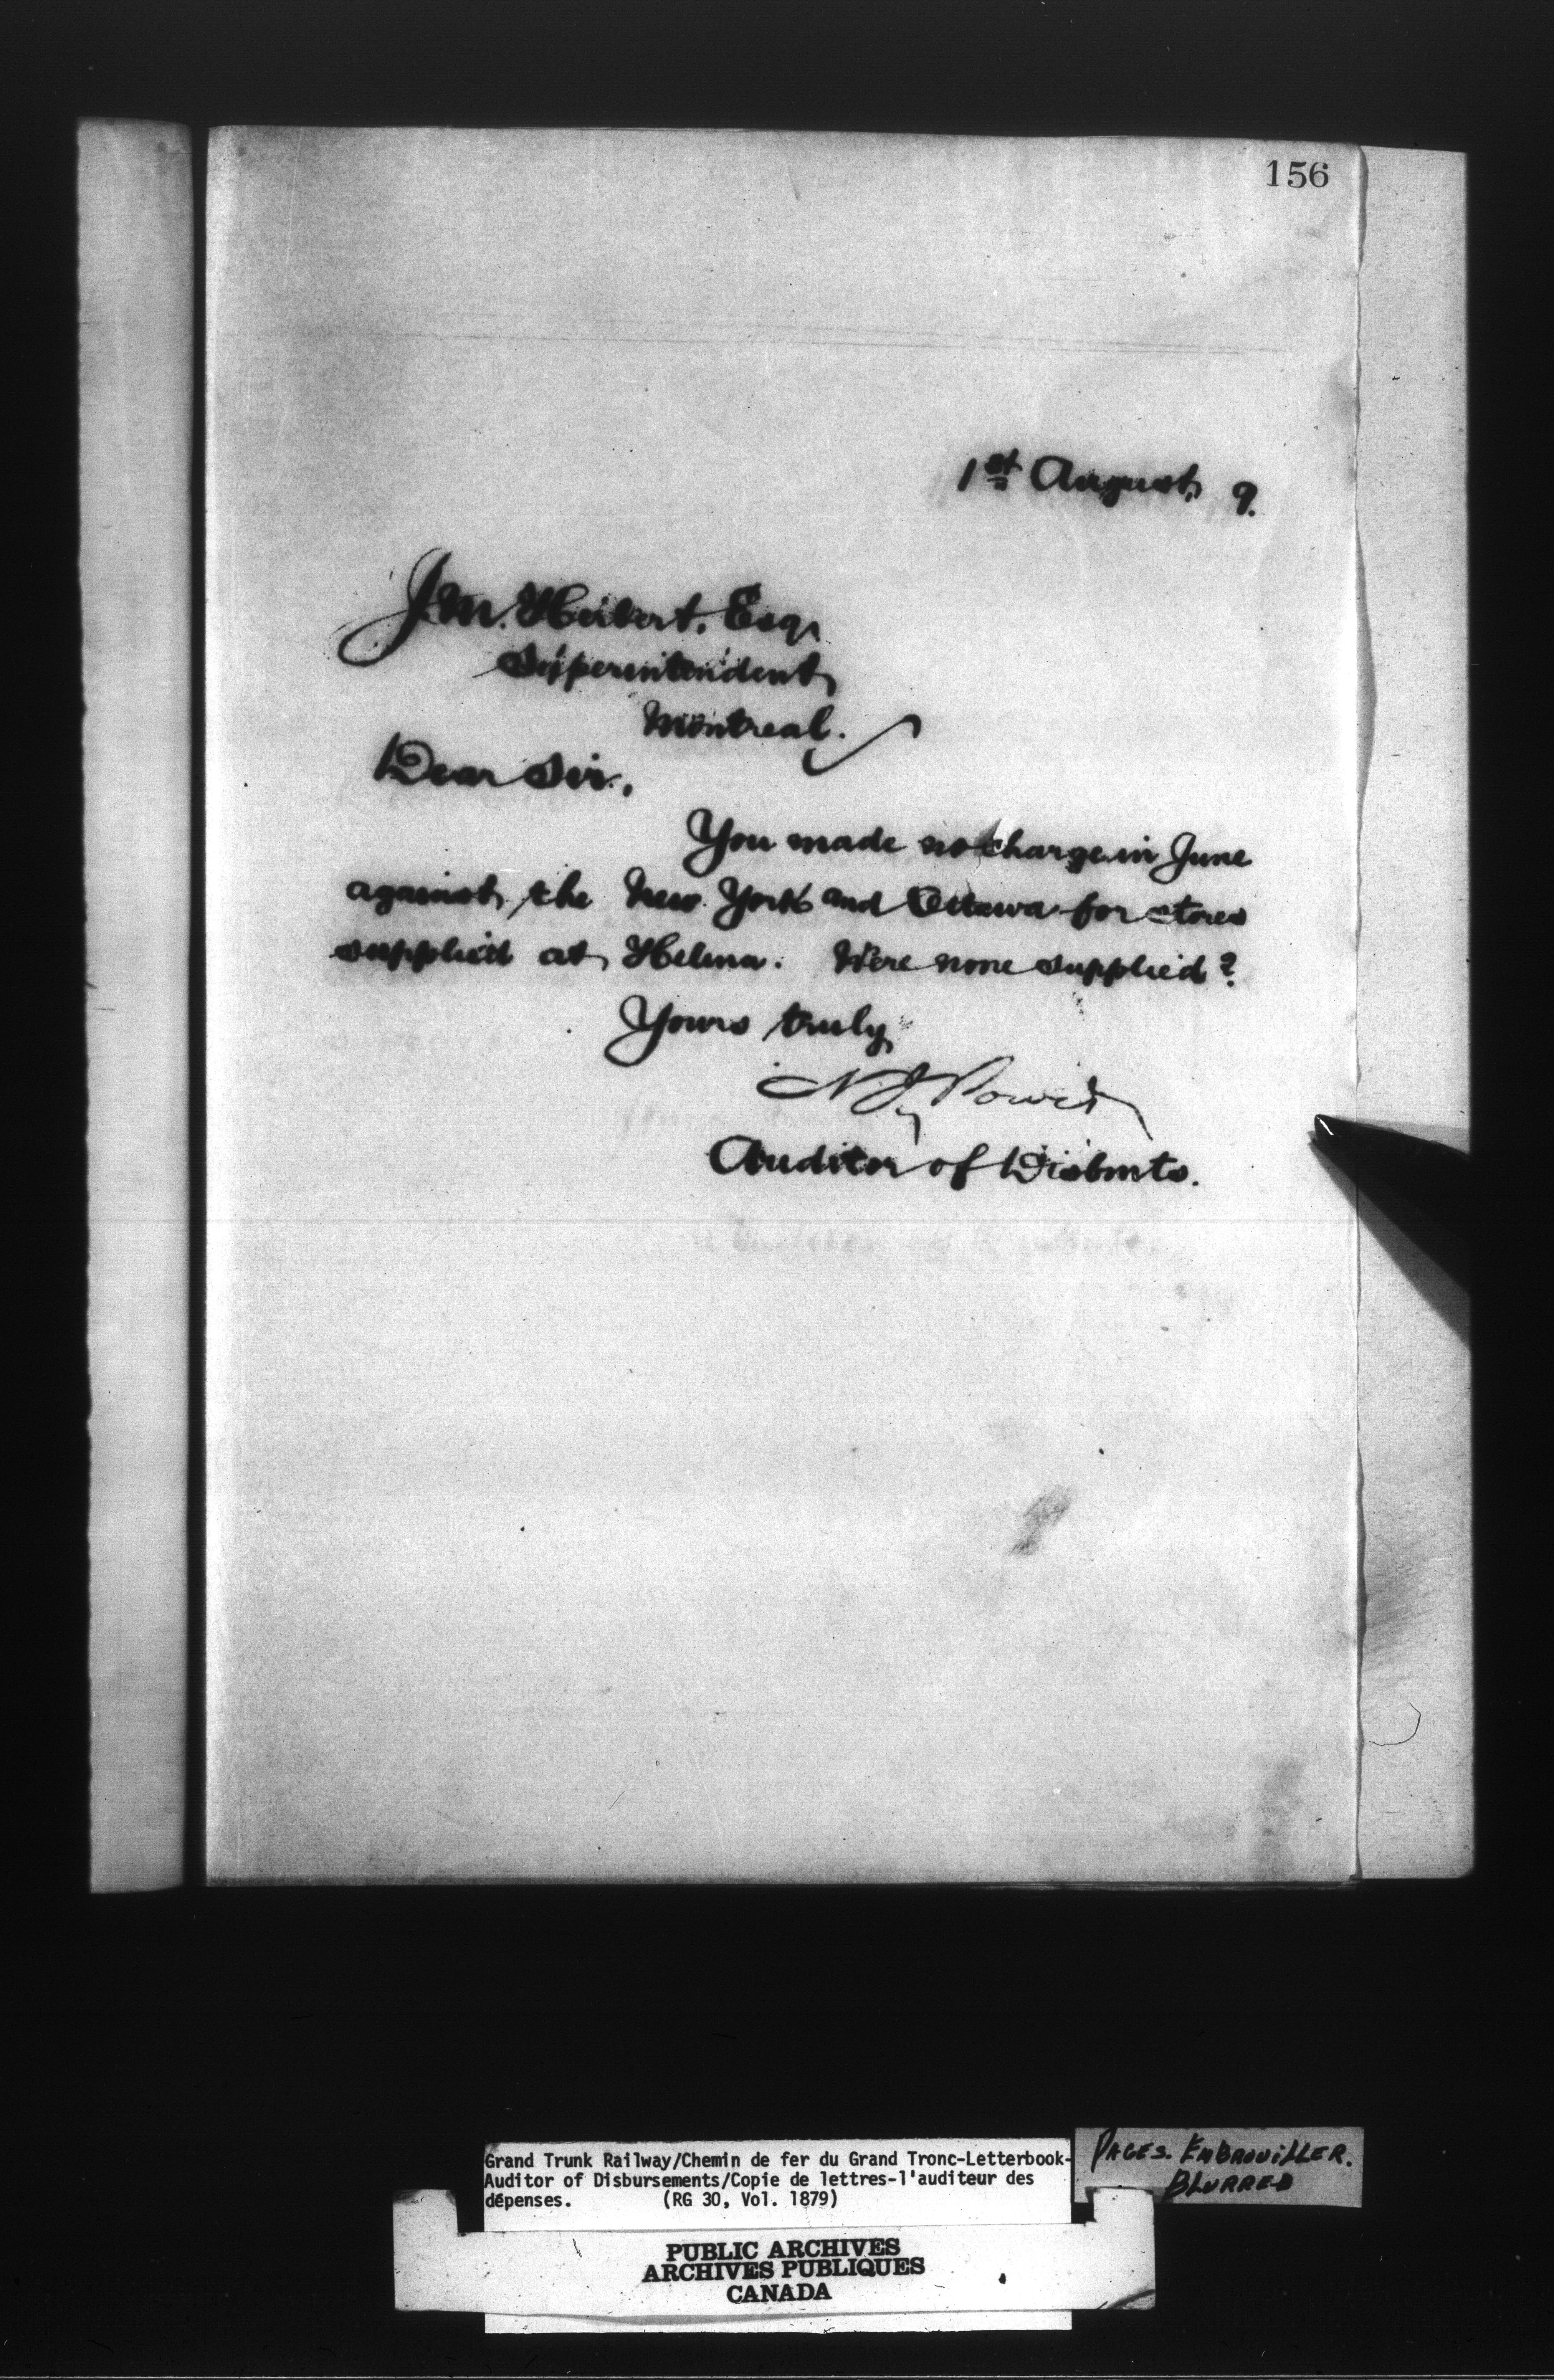 156
1st August, 9.
J.M. Herbert, Esq,
Superintendent,
Montreal.
Dear Sir,
You made no charge in June
against the New York and Ottawa for stores
supplied at Helena. Were none supplied?
Yours truly,
N J Power
Auditor of Disbmts.
Grand Trunk Railway/Chemin de fer du Grand Tronc-Letterbook-
Auditor of Disbursements/Copie de lettres-l'auditeur des
dépenses. (RG 30, Vol. 1879)
PAGES. EMBROUiLLER.
BLURRED
PUBLIC ARCHIVES
ARCHIVES PUBLIQUES
CANADA